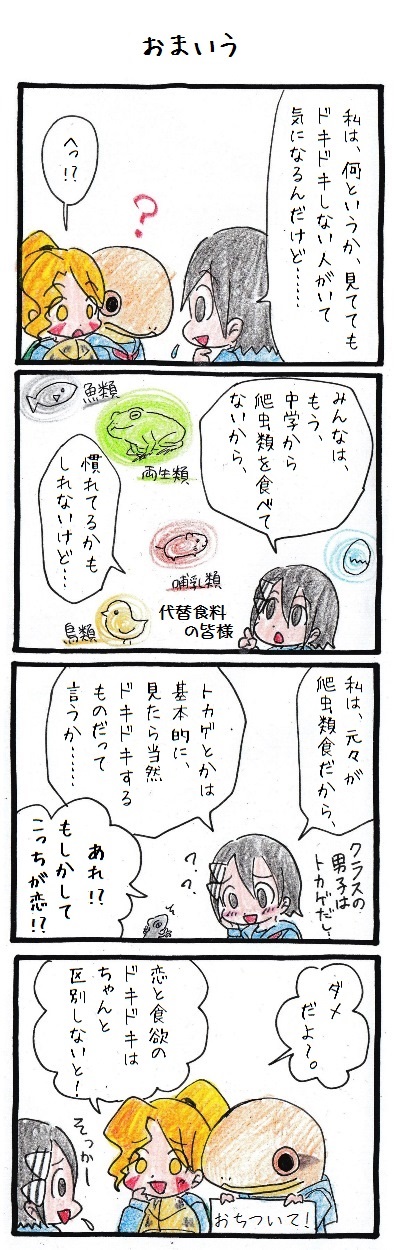 おまいう
私は、何というか、見てても
ドキドキしない人がいて
気になるんだけど……
へっ!?
?
みんなは、
もう、
中学から
爬虫類を食べて
ないから、
魚類
両生類
哺乳類
鳥類
代替食料
の皆様
慣れてるかも
しれないけど…
私は、元々が
爬虫類食だから、
トカゲとかは
基本的に、
見たら当然
ドキドキする
ものだって
言うか……
クラスの
男子は
トカゲだし…
あれ!?
もしかして
こっちが恋!?
ダメ
だよ〜。
恋と食欲の
ドキドキは
ちゃんと
区別しないと!
おちついて!
そっかー